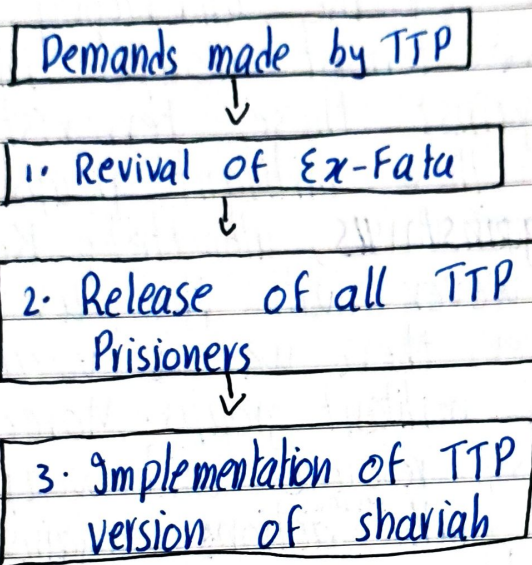 Demands made by TTP
1. Revival of Ex-Fata
2. Release of all TTP
Prisioners
3. Implementation of TTP
version of shariah